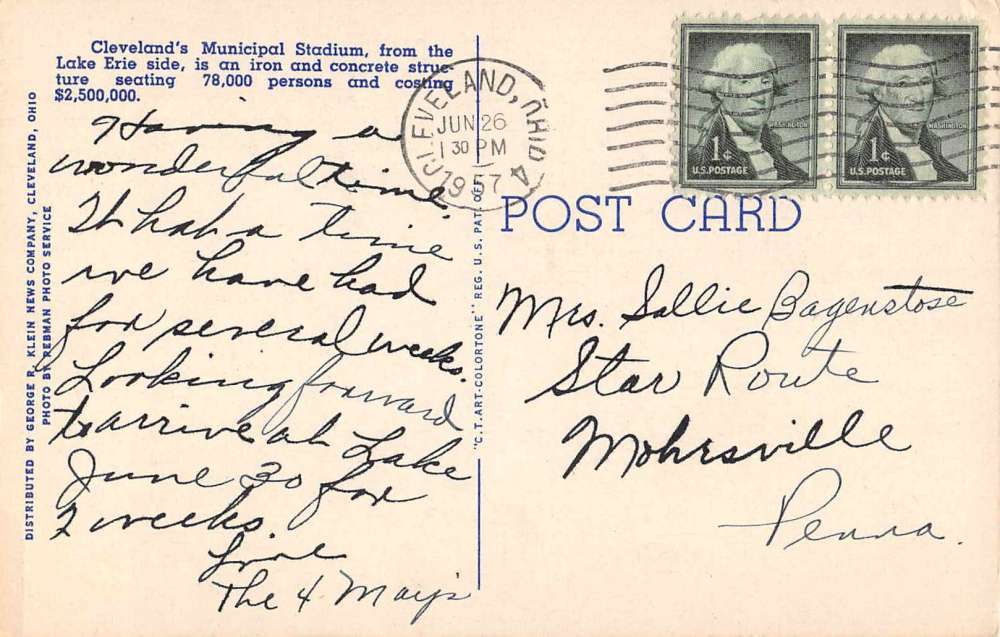 Cleveland's Municipal Stadium, from the
Lake Erie side, is an iron and concrete struc-
ture seating 78,000 persons and costing
$2,500,000.
Having a
wonderful time.
What a time
we have had
for several weeks.
Looking forward
to arrive at Lake
June 30 for
2 weeks.
Love
The 4 May's
DISTRIBUTED BY GEORGE R. KLEIN NEWS COMPANY, CLEVELAND, OHIO
PHOTO BY REBMAN PHOTO SERVICE
"C.T. ART-COLORTONE" REG. U.S. PAT. OFF.
CLEVELAND, OHIO 4
JUN 26
1 30 PM
1957
WASHINGTON
1¢
U.S. POSTAGE
WASHINGTON
1¢
U.S. POSTAGE
POST CARD
Mrs. Sallie Bagenstose
Star Route
Mohrsville
Penna.